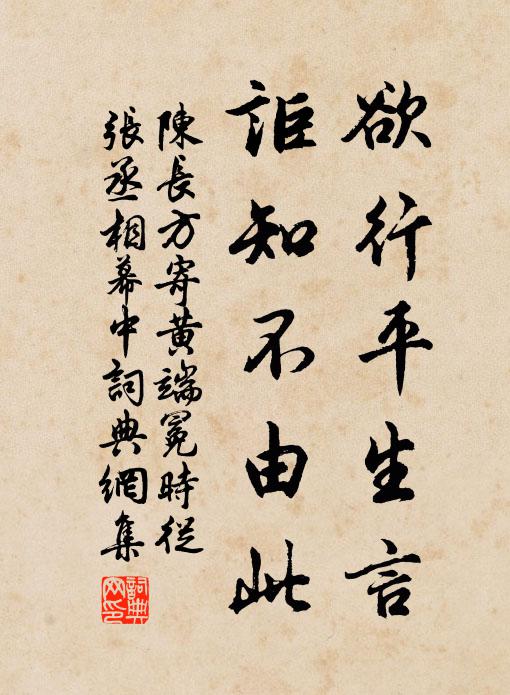 欲行平生言
詎知不由此
陳長方寄黃端冕時從
張丞相幕中詞典網集
詞典網印